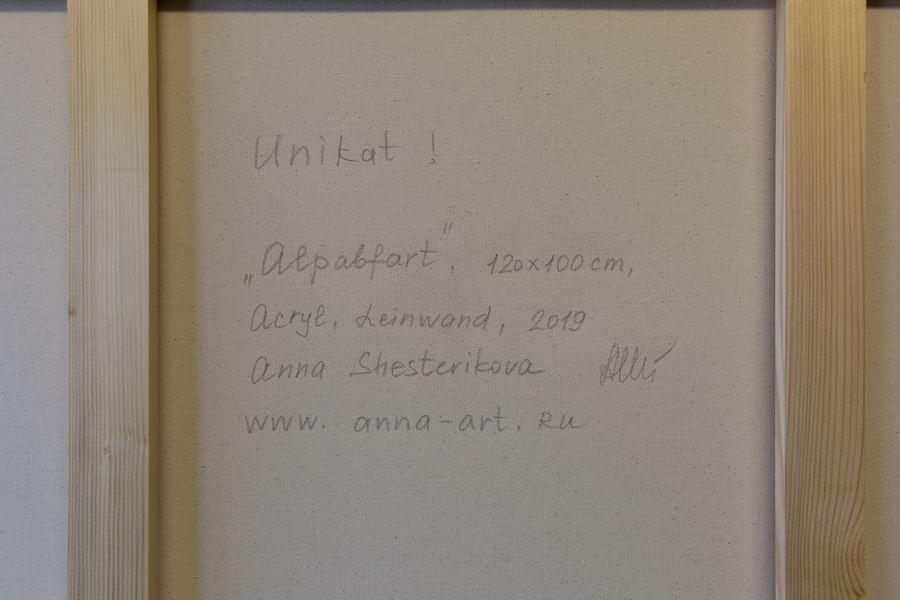 Unikat !
„Alpabfart", 120x100 cm,
Acryl, Leinwand, 2019
Anna Shesterikova
www. anna-art. Ru